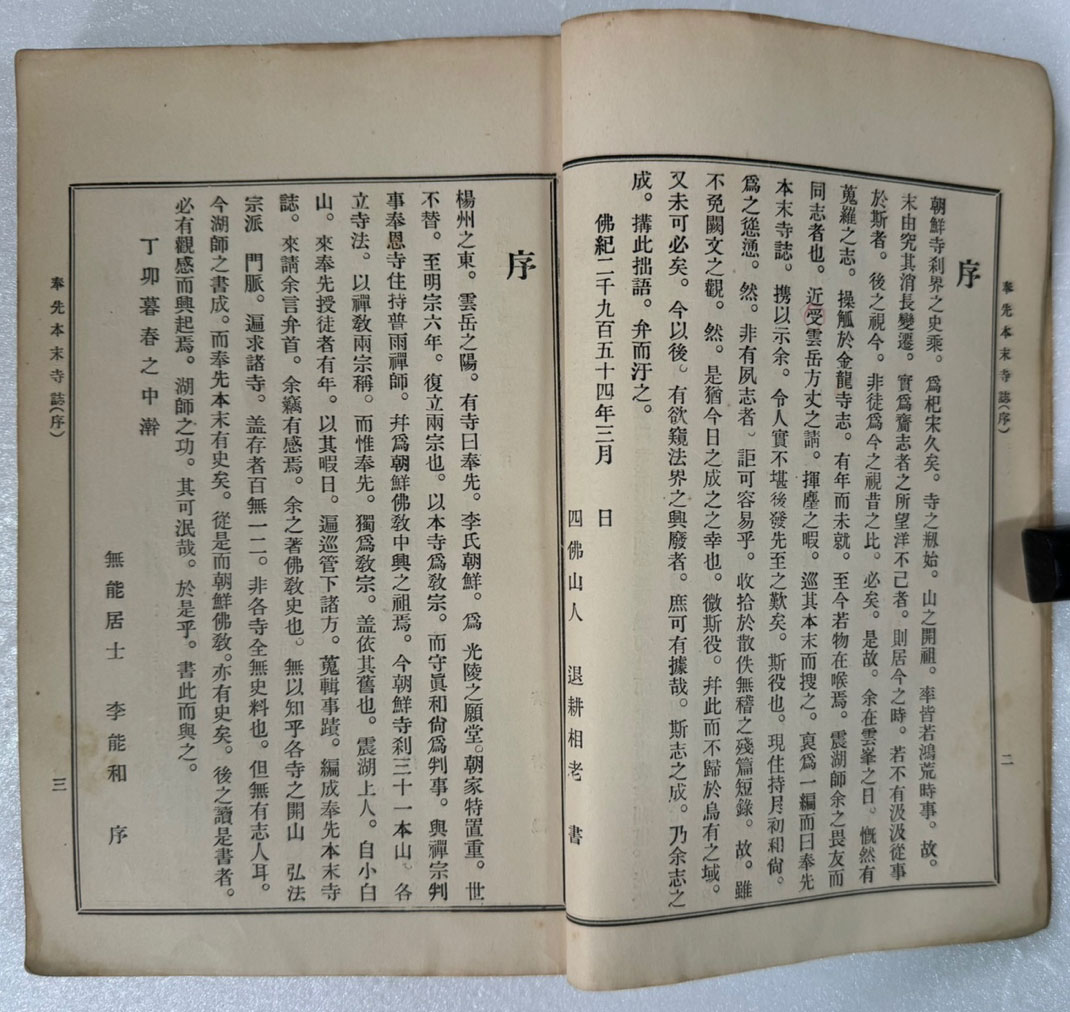 奉先本末寺誌(序)
二
序
朝鮮寺刹界之史乘。爲杞宋久矣。寺之刱始。山之開祖。率皆若鴻荒時事。故。
末由究其消長變遷。實爲齎志者之所望洋不己者。則居今之時。若不有汲汲從事
於斯者。後之視今。非徒爲今之視昔之比。必矣。是故。余在雲峯之日。慨然有
蒐羅之志。操觚於金龍寺志。有年而未就。至今若物在喉焉。震湖師余之畏友而
同志者也。近受雲岳方丈之請。揮麈之暇。巡其本末而搜之。裒爲一編而曰奉先
本末寺誌。携以示余。令人實不堪後發先至之歎矣。斯役也。現住持月初和尙。
爲之慫慂。然。非有夙志者。詎可容易乎。收拾於散佚無稽之殘篇短錄。故。雖
不免闕文之觀。然。是猶今日之成之之幸也。微斯役。幷此而不歸於烏有之域。
又未可必矣。今以後。有欲窺法界之興廢者。庶可有據哉。斯志之成。乃余志之
成。搆此拙語。弁而汙之。
佛紀二千九百五十四年三月　日
四佛山人　退耕相老　書
序
楊州之東。雲岳之陽。有寺曰奉先。李氏朝鮮。爲 光陵之願堂。朝家特置重。世
不替。至明宗六年。復立兩宗也。以本寺爲敎宗。而守眞和尙爲判事。與禪宗判
事奉恩寺住持普雨禪師。幷爲朝鮮佛敎中興之祖焉。今朝鮮寺刹三十一本山。各
立寺法。以禪敎兩宗稱。而惟奉先。獨爲敎宗。盖依其舊也。震湖上人。自小白
山。來奉先授徒者有年。以其暇日。遍巡管下諸方。蒐輯事蹟。編成奉先本末寺
誌。來請余言弁首。余竊有感焉。余之著佛敎史也。無以知乎各寺之開山　弘法
宗派　門脈。遍求諸寺。盖存者百無一二。非各寺全無史料也。但無有志人耳。
今湖師之書成。而奉先本末有史矣。從是而朝鮮佛敎。亦有史矣。後之讀是書者。
必有觀感而興起焉。湖師之功。其可泯哉。於是乎。書此而與之。
丁卯暮春之中澣
無能居士　李能和　序
奉先本末寺誌(序)
三